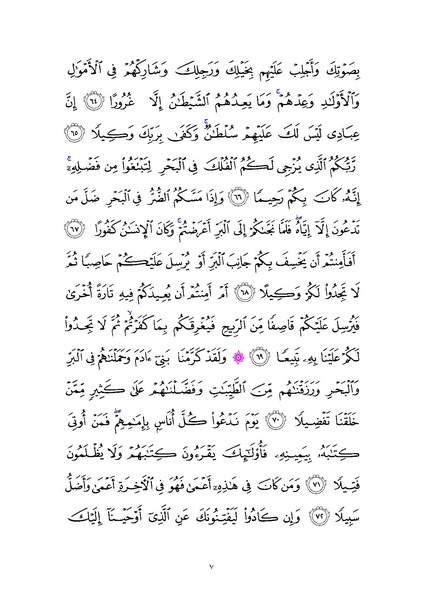 بِصَوْتِكَ وَأَجْلِبْ عَلَيْهِم بِخَيْلِكَ وَرَجِلِكَ وَشَارِكْهُمْ فِى ٱلْأَمْوَٰلِ
وَٱلْأَوْلَٰدِ وَعِدْهُمْ ۚ وَمَا يَعِدُهُمُ ٱلشَّيْطَٰنُ إِلَّا غُرُورًا ۝٦٤ إِنَّ
عِبَادِى لَيْسَ لَكَ عَلَيْهِمْ سُلْطَٰنٌ ۚ وَكَفَىٰ بِرَبِّكَ وَكِيلًا ۝٦٥
رَّبُّكُمُ ٱلَّذِى يُزْجِى لَكُمُ ٱلْفُلْكَ فِى ٱلْبَحْرِ لِتَبْتَغُوا۟ مِن فَضْلِهِۦٓ ۚ
إِنَّهُۥ كَانَ بِكُمْ رَحِيمًا ۝٦٦ وَإِذَا مَسَّكُمُ ٱلضُّرُّ فِى ٱلْبَحْرِ ضَلَّ مَن
تَدْعُونَ إِلَّآ إِيَّاهُ ۖ فَلَمَّا نَجَّىٰكُمْ إِلَى ٱلْبَرِّ أَعْرَضْتُمْ ۚ وَكَانَ ٱلْإِنسَٰنُ كَفُورًا ۝٦٧
أَفَأَمِنتُمْ أَن يَخْسِفَ بِكُمْ جَانِبَ ٱلْبَرِّ أَوْ يُرْسِلَ عَلَيْكُمْ حَاصِبًا ثُمَّ
لَا تَجِدُوا۟ لَكُمْ وَكِيلًا ۝٦٨ أَمْ أَمِنتُمْ أَن يُعِيدَكُمْ فِيهِ تَارَةً أُخْرَىٰ
فَيُرْسِلَ عَلَيْكُمْ قَاصِفًا مِّنَ ٱلرِّيحِ فَيُغْرِقَكُم بِمَا كَفَرْتُمْ ۙ ثُمَّ لَا تَجِدُوا۟
لَكُمْ عَلَيْنَا بِهِۦ تَبِيعًا ۝٦٩ ۞ وَلَقَدْ كَرَّمْنَا بَنِىٓ ءَادَمَ وَحَمَلْنَٰهُمْ فِى ٱلْبَرِّ
وَٱلْبَحْرِ وَرَزَقْنَٰهُم مِّنَ ٱلطَّيِّبَٰتِ وَفَضَّلْنَٰهُمْ عَلَىٰ كَثِيرٍ مِّمَّنْ
خَلَقْنَا تَفْضِيلًا ۝٧٠ يَوْمَ نَدْعُوا۟ كُلَّ أُنَاسٍۭ بِإِمَٰمِهِمْ ۖ فَمَنْ أُوتِىَ
كِتَٰبَهُۥ بِيَمِينِهِۦ فَأُو۟لَٰٓئِكَ يَقْرَءُونَ كِتَٰبَهُمْ وَلَا يُظْلَمُونَ
فَتِيلًا ۝٧١ وَمَن كَانَ فِى هَٰذِهِۦٓ أَعْمَىٰ فَهُوَ فِى ٱلْءَاخِرَةِ أَعْمَىٰ وَأَضَلُّ
سَبِيلًا ۝٧٢ وَإِن كَادُوا۟ لَيَفْتِنُونَكَ عَنِ ٱلَّذِىٓ أَوْحَيْنَآ إِلَيْكَ
٧